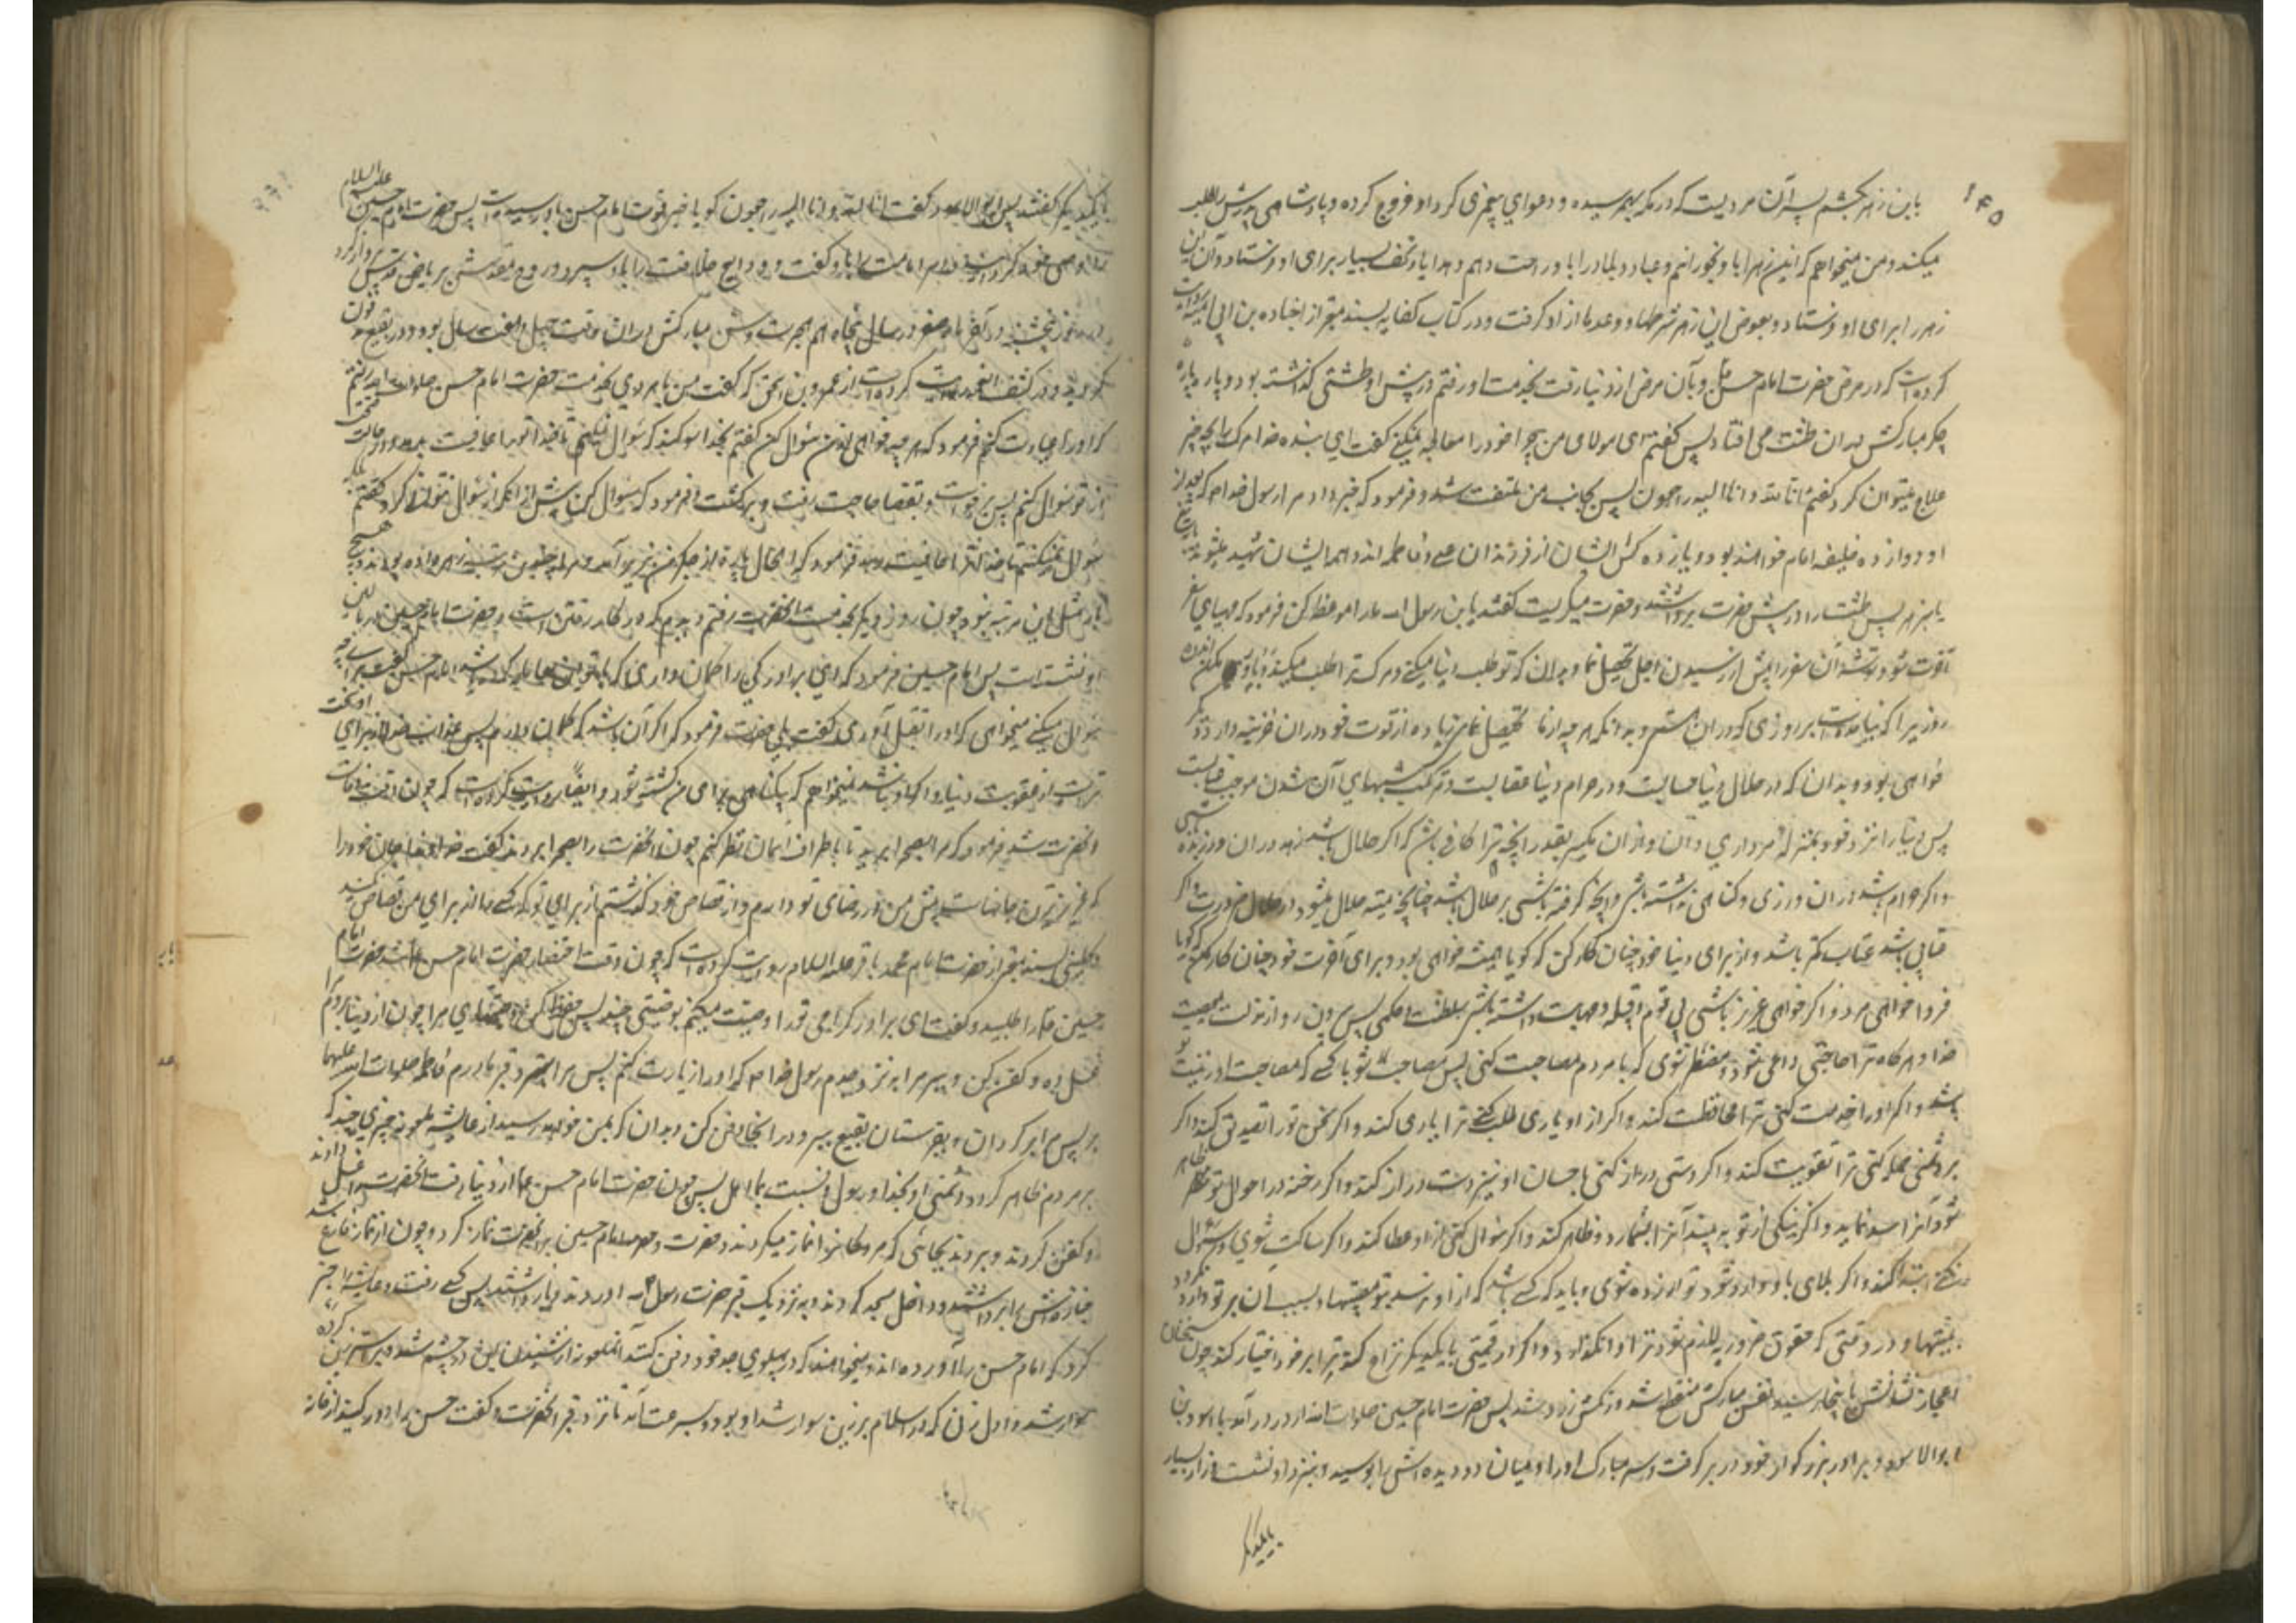 ۱۴۵
باین زهر بکشم پسر آن مردیست که در مکه بهم رسیده و دعوای پیغمبری کرد و او خروج کرده و پادشاهی پدرش را طلب
میکند و من میخواهم که این زهر را باو بخورانم و عباد و بلاد را باو راحت دهم و هدایا و تحف بسیار برای او فرستاد و آن این
زهر را برای او فرستاد و بعوض این زهر شرطها و وعدها از او گرفت و در کتاب کفایه بسند معتبر از جناده بن ابی امیه روایت
کرده است که در مرض حضرت امام حسن که بآن مرض از دنیا رفت بخدمت او رفتم در پیش او طشتی گذاشته بود و پاره پاره
جگر مبارکش در ان طشت می افتاد پس گفتم ای مولای من چرا خود را معالجه نمیکنی گفت ای بنده خدا مرگ را بچه چیز
علاج میتوان کرد گفتم انا لله و انا الیه راجعون پس بجانب من ملتفت شد و فرمود که خبر داد مرا رسول خدا که بعد از
او دوازده خلیفه امام خواهند بود و یازده کس ایشان از فرزندان علی و فاطمه اند و همه ایشان شهید میشوند به تیغ
یا بزهر پس طشت را از پیش حضرت برداشتند و حضرت میگریست گفتند یا بن رسول الله ما را موعظه کن فرمود که مهیای سفر
آخرت شو و توشه آن سفر را پیش از رسیدن اجل تحصیل نما و بدان که تو طلب دنیا میکنی و مرگ ترا طلب میکند و بار مکن اندوه
روزیرا که نیامده است بر روزی که در ان هستی و بدانکه هر چه از مال تحصیل نمائی زیاده از قوت خود در ان خزینه دار دیگر
خواهی بود و بدان که در حلال دنیا حسابست و در حرام دنیا عقابست و مرتکب شبهه‌های آن شدن موجب عتابست
پس دنیا را نزد خود بمنزله مرداری دان و از ان مگیر بقدر آنچه ترا کافی باشد که اگر حلال باشد زهد در ان ورزیده باشی
و اگر حرام باشد در ان وزری و گناهی نداشته باشی و آنچه گرفته باشی بر تو حلال باشد چنانچه میته حلال میشود در حال ضرورت و اگر
عتابی باشد عتاب کمتر باشد و از برای دنیا خود چنان کار کن که گویا همیشه خواهی بود و برای آخرت خود چنان کار کن که گویا
فردا خواهی مرد و اگر خواهی عزیز باشی بی قوم و قبیله و مهابت داشته باشی بی سلطنت و حکمی پس بیرون رو از مذلت معصیت
خدا و هر گاه ترا حاجتی داعی شود و مضطر شوی که با مردم مصاحبت کنی پس مصاحب شو با کسی که مصاحبت او زینت تو
باشد و اگر او را خدمت کنی ترا محافظت کند و اگر از او یاری طلب کنی ترا یاری کند و اگر سخن گوئی تو را تصدیق کند و اگر
بر دشمنی حمله کنی ترا تقویت کند و اگر دستی دراز کنی باحسان او نیز دست دراز کند و اگر رخنه در احوال تو ظاهر
شود آنرا سد نماید و اگر نیکی از تو به بیند آنرا بشمارد و ظاهر کند و اگر سوال کنی از او عطا کند و اگر ساکت شوی و سؤال
نکنی ابتدا کند و اگر بلای باو وارد شود تو آزرده شوی و باید که کسی باشد که از او نرسد بتو مصیبتها و بسبب آن بر تو وارد نگردد
بلیتها و در وقتی که حقوق ضروریه لازم شود ترا وانگذارد و اگر در قسمتی با یکدیگر نزاع کنید ترا بر خود اختیار کند چون سخنان
اعجاز نشانش باینجا رسید نفس مبارکش منقطع شد و رنگش زرد شد پس حضرت امام حسین صلوات الله از در درآمد با اسود بن
ابو الاسود و برادر بزرگوار خود در بر گرفت و سر مبارک او را و میان دو دیده اش را بوسید و نزد او نشست و راز بسیار
با یکدیگر
با یکدیگر گفتند پس ابو الاسود گفت انا لله و انا الیه راجعون گویا خبر فوت امام حسن باو رسیده است پس حضرت امام حسین علیه السلام
را وصی خود گردانید و اسرار امامت را باو گفت و ودایع خلافت را باو سپرد و روح مقدسش بریاض قدس پرواز کرد
در روز پنجشنبه در آخر ماه صفر در سال پنجاهم هجرت و سن مبارکش در ان وقت چهل و هفت سال بود و در بقیع مدفون
گردید و در کشف الغمه روایت کرده است از عمرو بن اسحق که گفت من با مردی بخدمت حضرت امام حسن صلوات الله علیه رفتم
که او را عیادت کنم فرمود که هر چه خواهی از من سؤال کن گفتم بخدا سوگند که سوال نمیکنم تا خدا تو را عافیت بدهد و در حالت صحت
از تو سوال کنم پس برخواست و بقضا حاجت رفت و برگشت و فرمود که سوال کن پیش از انکه از سؤال نتوانی کرد گفتم بلکه
سؤال نمیکنم تا خدا ترا عافیت دهد فرمود که الحال پاره از جگر من بزیر آمد و مرا چندین مرتبه زهر داده بودند و هیچ
بار مثل این مرتبه نبود چون روز دیگر بخدمت آنحضرت رفتم دیدم که در کار رفتن است و حضرت امام حسین در بالین
او نشسته است پس امام حسین فرمود که ای برادر کی را گمان داری که با تو این معامله کرده باشد امام حسن گفت برای چه
سوال میکنی میخواهی که او را بقتل آوری گفت بلی حضرت فرمود که اگر آن باشد که گمان دارم پس عذاب خدا از برای او سخت
تر است از عقوبت دنیا و اگر او نباشد نمیخواهم که بیگناهی برای من کشته شود و ایضاً روایت کرده است که چون وقت وفات
آنحضرت شد فرمود که مرا بصحرا برید تا باطراف آسمان نظر کنم چون آنحضرت را بصحرا بردند گفت خداوندا جان خود را
که عزیزترین جانهاست پیش من در رضای تو دادم و از قصاص خود گذشتم از برای تو که کسی را از برای من قصاص نکنند
و کلینی بسند معتبر از حضرت امام محمد باقر علیه السلام روایت کرده است که چون وقت احتضار حضرت امام حسن شد حضرت امام
حسین را طلبید و گفت ای برادر گرامی قدر وصیت میکنم بوصیتی چند پس حفظ کن وصیتهای مرا چون از دنیا بروم مرا
غسل ده و کفن کن و ببر مرا بنزد جدم رسول خدا که او را زیارت کنم پس مرا ببر بنزد قبر مادرم فاطمه صلوات الله علیها
پس مرا برگردان و بقبرستان بقیع ببر و در انجا دفن کن و بدان که بمن خواهد رسید از عایشه ملعونه چیزی چند که
بر مردم ظاهر گردد دشمنی او بخدا و رسول و نسبت بما اهل بیت چون حضرت امام حسن از دنیا رفت آنحضرت را غسل دادند
و کفن کردند و بردند بجائی که بر مردگان نماز میکردند و حضرت امام حسین بر آنحضرت نماز کرد و چون از نماز فارغ شد
جنازه اش را برداشتند و داخل مسجد کردند و به نزدیک قبر حضرت رسول آوردند و باز داشتند پس کسی رفت و عایشه را خبر
کرد که امام حسن را آورده اند و میخواهند که در پهلوی جد خود دفن کنند آن ملعونه از شنیدن این در خشم شد و بر استر زین کرده
سوار شد و اول زنی که در اسلام بر زین سوار شد او بود و بسرعت آمد تا نزد قبر آنحضرت و گفت حسن را دور کنید از خانه